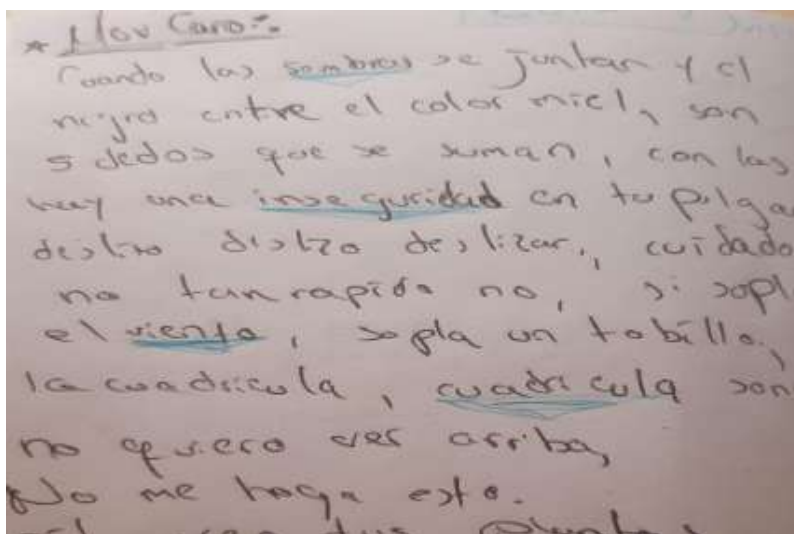 * Mov Caro:
Cuando las sombras se juntan y el
negro entre el color miel, son
5 dedos que se suman, con las
hay una inseguridad en tu pulga
deslizar, cuidado
no tan rapido no, si sopl
el viento, sopla un tobillo,
la cuadricula, cuadricula son
no quiero ver arriba,
No me haga esto.